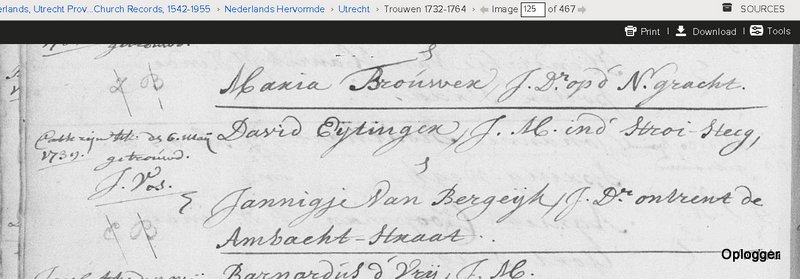 erlands, Utrecht Prov...Church Records, 1542-1955 › Nederlands Hervormde › Utrecht › Trouwen 1732-1764 › Image 125 of 467 SOURCES
Print | Download | Tools
getrouwd.
Maria Brouwer, J. Dr. op d' N. gracht.
David Eijtinger, J. M. in d' Stroi-Steeg,
Cathrijne kk. de 6. Maij
1739. getrouwd.
J. Vos.
Jannigje Van Bergeijk, J. Dr. ontrent de
Ambacht-Straat.
Barnardus d' Vrij, J. M.
Oplogger